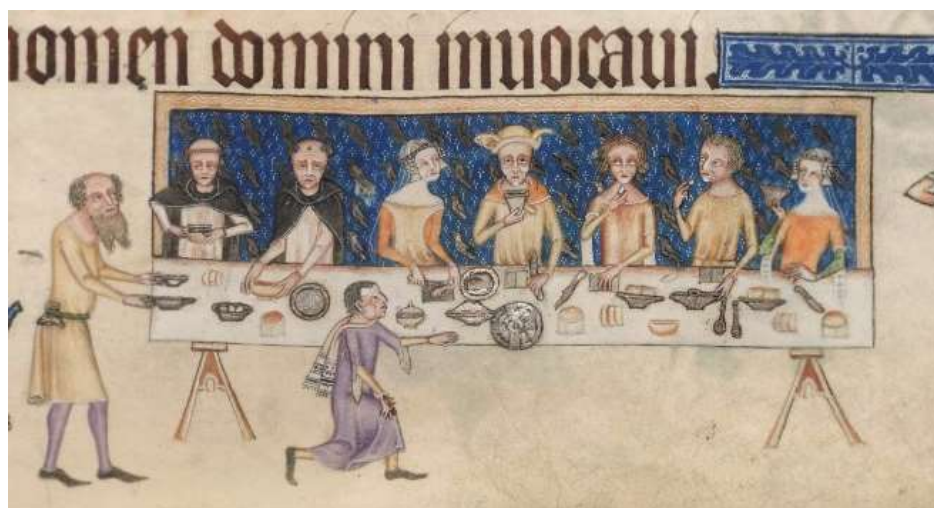 nomen domini inuocaui.